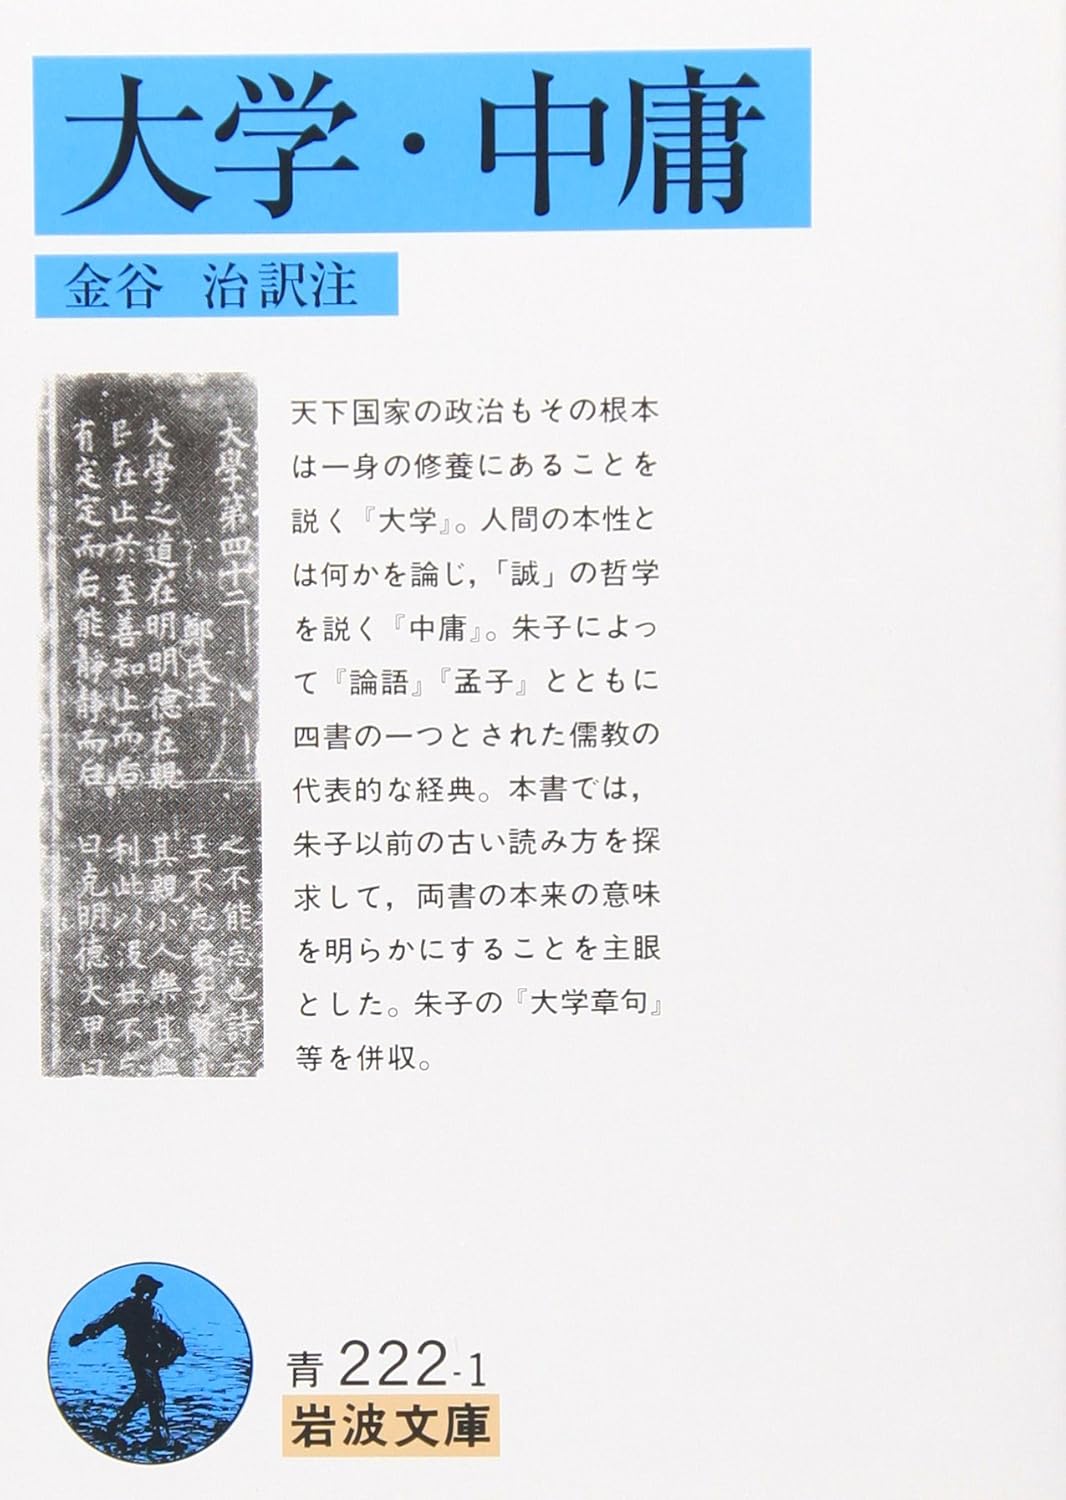 大学・中庸
金谷 治訳注
天下国家の政治もその根本
は一身の修養にあることを
説く『大学』。人間の本性と
は何かを論じ，「誠」の哲学
を説く『中庸』。朱子によっ
て『論語』『孟子』とともに
四書の一つとされた儒教の
代表的な経典。本書では，
朱子以前の古い読み方を探
求して，両書の本来の意味
を明らかにすることを主眼
とした。朱子の『大学章句』
等を併収。
大學第四十二 鄭氏注
大學之道在明明德在親
在止於至善知止而后
有定定而后能靜靜而后
之不能忘也詩云
王不忘君子賢其
其親小人樂其
利此以沒世不
曰克明德大甲曰
青 222-1
岩波文庫